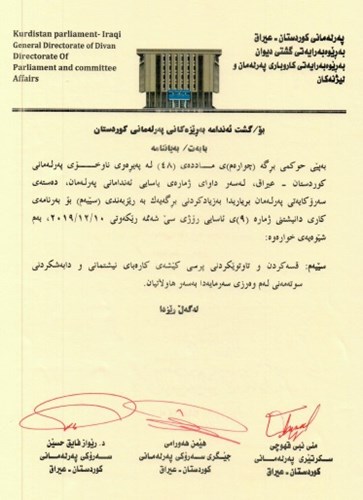 Kurdistan parliament- Iraqi
General Directorate of Divan
Directorate Of
Parliament and committee
Affairs
پەرلەمانی کوردستان - عیراق
بەڕێوەبەرایەتی گشتی دیوان
بەڕێوەبەرایەتی کاروباری پەرلەمان و
لیژنەکان
بۆ/ گشت ئەندامە بەڕێزەکانی پەرلەمانی کوردستان
بابەت/ بەیاننامە
بەپێی حوکمی بڕگە (چوارەم)ی ماددەی (٤٨) لە پەیڕەوی ناوخۆی پەرلەمانی
کوردستان - عیراق، لەسەر داوای ژمارەی یاسایی ئەندامانی پەرلەمان، دەستەی
سەرۆکایەتی پەرلەمان بڕیاریدا بەزیادکردنی بڕگەیەک بە ڕیزبەندی (سێیەم) بۆ بەرنامەی
کاری دانیشتنی ژمارە (٩)ی ئاسایی ڕۆژی سێ شەممە ڕێکەوتی ٢٠١٩/١٢/١٠، بەم
شێوەیەی خوارەوە:
سێیەم: قسەکردن و تاوتوێکردنی پرسی کێشەی کارەبای نیشتمانی و دابەشکردنی
سوتەمەنی لەم وەرزی سەرمایەدا بەسەر هاوڵاتیان.
لەگەڵ ڕێزدا
منی نبی قهوچی
سکرتێری پەرلەمانی
کوردستان - عیراق
هێمن هەورامی
جێگری سەرۆکی پەرلەمانی
کوردستان - عیراق
د. ڕێواز فایق حسێن
سەرۆکی پەرلەمانی
کوردستان - عیراق